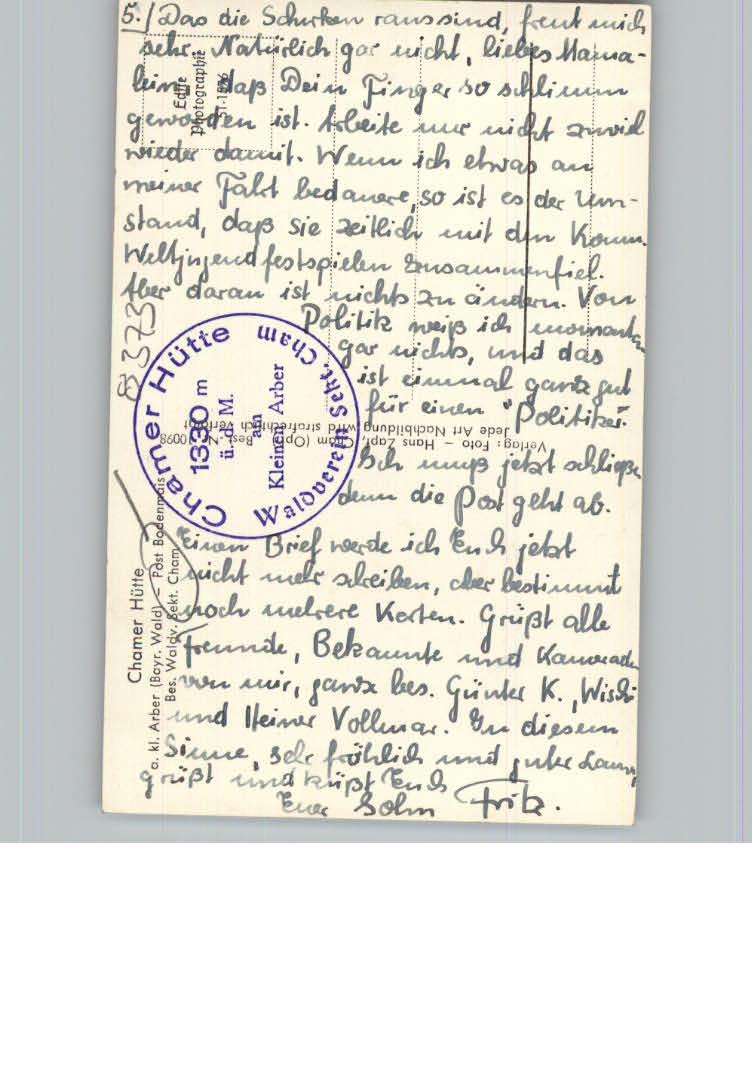 5./ Das die Schurken raus sind, freut mich
sehr. Natürlich gar nicht, liebes Mama-
lein, daß Dein Finger so schlimm
geworden ist. Arbeite nur nicht zuviel
wieder damit. Wenn ich etwas an
meiner Fahrt bedauere, so ist es der Um-
stand, daß sie zeitlich mit den Komm.
Weltjugendfestspielen zusammenfiel.
Aber daran ist nichts zu ändern. Von
Politik weiß ich momentan
gar nichts, und das
ist einmal ganz gut
für einen "Politiker".
Ich muß jetzt schließen
denn die Post geht ab.
Einen Brief werde ich Euch jetzt
nicht mehr schreiben, aber bestimmt
noch mehrere Karten. Grüßt alle
Freunde, Bekannte und Kameraden
von mir, ganz bes. Günter K.,
und Heiner Vollmar. In diesem
Sinne, sehr fröhlich und guter Laune,
grüßt und küßt Euch
Euer Sohn Fritz.
Echte
Photographie
8373
Chamer Hütte
1330 m
ü. d. M.
am
Kleinen Arber
Waldverein Sekt. Cham
Verlag: Foto – Hans Zapf, Cham (Opf.) Best.-Nr. 10098
Jede Art Nachbildung wird strafrechtlich verfolgt
Chamer Hütte
a. kl. Arber (Bayr. Wald) – Post Bodenmais
Bes. Waldv. Sekt. Cham